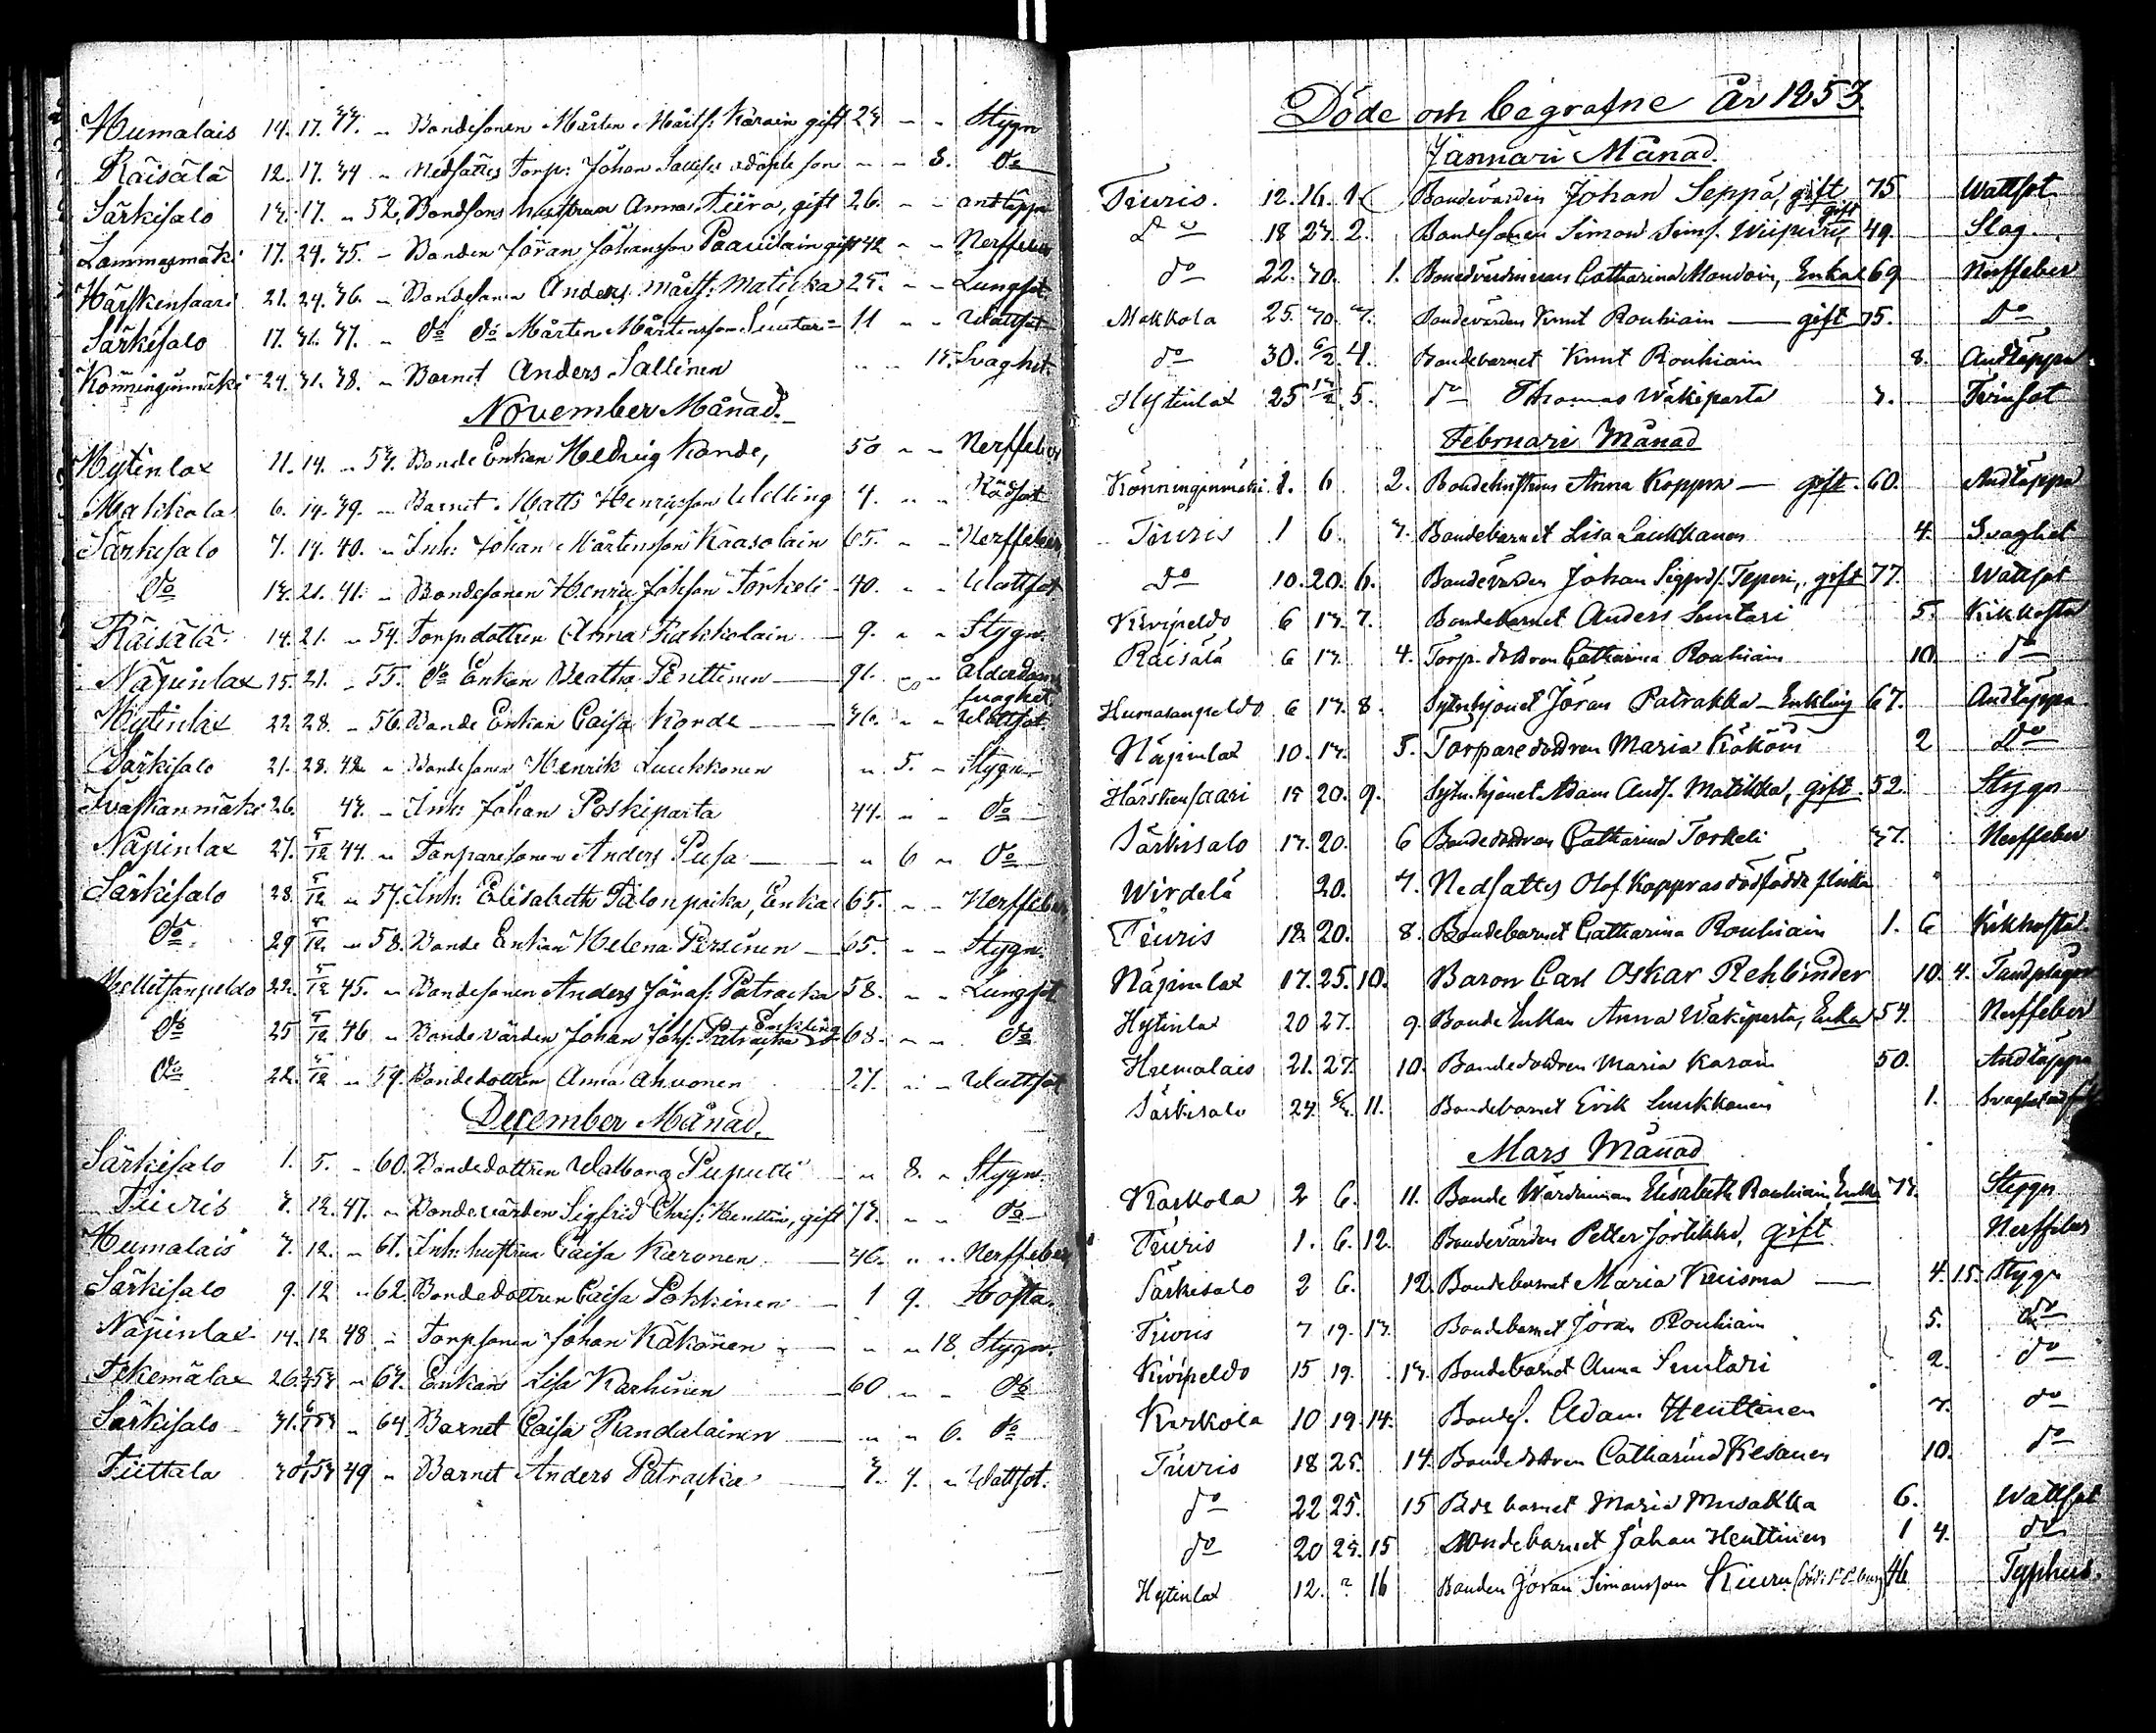 Humalais 14. 17. 33. " Bondesonen Mårten Mårts: Karain gift 23 " " Stygn
Räisälä 12. 17. 34 " Nedsättes Torp: Johan son " " 8. do
Särkisalo 13. 17. " 52. Bondsons hustrun Anna Tiira, gift 26. " " andtäppa
Lammasmäki 17. 24. 35. " Bonden Jöran Johansson Paavilain gift 42 " " Nerffeber
Härskensaari 21. 24. 36. " Bondesonen Anders Mårts: Matikka 25. " " Lungsot
Särkisalo 17. 31. 37. " do do Mårten Mårtensson Suutari 11 " " Wattsot
Könninginmäki 24. 31. 38. " Barnet Anders Sallinen " " 15. Svaghet
November Månad.
Hytinlax 11. 14. " 53. Bonde Enkan Hedvig Korde, 50 " " Nerffeber
Makkola 6. 14. 39. " Barnet Matts Henricsson Welling 4. " " Rödsot
Särkisalo 7. 14. 40. " Inh: Johan Mårtensson Kaasolain 65. " " Nerffeber
do 13. 21. 41. " Bondesonen Henric Johsson Torkeli 40. " " Wattsot
Räisälä 14. 21. " 54. Torpdottren Anna Pakkolain 9. " " Stygn
Näpinlax 15. 21. " 55. do Enkan Beatha Penttinen 91. " " Ålderdoms svaghet
Hytinlax 22. 28. " 56. Bonde Enkan Caisa Korde 36. " " Wattsot.
Särkisalo 21. 28. 42 " Bondesonen Henrik Luukkonen " 5. " Stygn
Ivaskanmäki 26. 43. " Inh: Johan Poskiparta 44. " " do
Näpinlax 27. 5/12 44. " Torparesonen Anders Pusa " 6 " do
Särkisalo 28. 5/12 " 57. Inh: Elisabeth Talonpoika, Enka 65. " " Nerffeber
do 29 5/12 " 58. Bonde Enkan Helena Persinen 65. " " Stygn.
Mellitsanpeldo 22. 5/12 45. " Bondesonen Anders Jöras: Patracka 58. " " Lungsot
do 25 5/12 46 " Bondevärden Johan Johs: Patracka Enkling 68. " " do
do 22. 5/12 " 59. Bondedottren Anna Ahvonen 27. " " Wattsot
December Månad.
Särkisalo 1. 5. " 60. Bondedottren Walborg Puputti " 8. " Stygn.
Tiuris 3. 12. 47. " Bondevärden Sigfrid Chris: Henttin, gift 73. " " do
Humalais 7. 12. " 61. Inh: hustrun Caisa Karonen 46. " " Nerffeber
Särkisalo 9. 12 " 62. Bondedottren Caisa Pohkinen 1 9. Hosta.
Näpinlax 14. 12 48 " Torpsonen Johan Käkönen " " 18 Stygn.
Tekemälax 26. " 63. Enkan Lisa Karhinen 60 " " do
Särkisalo 31. " 64 Barnet Caisa Randalainen " " 6. do
Tiittala 30 49 " Barnet Anders Patracka 3. 4. " Wattsot.
Döde och begrafne År 1853.
Januari Månad.
Tiuris. 12. 16. 1. Bondevärden Johan Seppä, gift 75. Wattsot
do 18 23. 2. Bondesonen Simon Sims. Wiiperi, gift 49. Slag.
do 22. 30. 1. Bondevärdinnan Catharina Mondoin, Enka 69 Nerffeber
Makkola 25. 30. 3. Bondevärden Knut Rouhiain gift 75. do
do 30. 6/2 4. Bondebarnet Knut Rouhiain 8. Andtäppa
Hytinlax 25 13/2 5. do Thomas Wäkiparta 3. Tvinsot
Februari Månad
Könninginmäki 1. 6 2. Bondehustrun Anna Koppra gift. 60. Andtäppa
Tiuris 1 6 3. Bondebarnet Lisa Laukkanen 4. Svaghet
do 10. 20. 6. Bondevärden Johan Sigfrds. Teperi, gift 77. Wattsot
Kivipeldo 6 13. 7. Bondebarnet Anders Suutari 5. Kikhosta
Räisälä 6 13. 4. Torp. dottren Catharina Rouhiain 10. do
Humalanpeldo 6 13. 8. Sytnhjonet Jöran Patrakka Enkling 67. Andtäppa
Näpinlax 10. 13. 5. Torparedottren Maria Käköin 2 do
Härskensaari 15 20. 9. Sytn.hjonet Adam Ands. Matikka, gift. 52. Stygn
Särkisalo 13. 20. 6 Bondedottren Catharina Torkeli 37. Nerffeber
Wirdelä 20. 7. Nedsattes Olof Koppras dödfödda flicka "
Tiuris 18 20. 8. Bondebarnet Catharina Rouhiain 1. 6 Kikhosta
Näpinlax 17. 25. 10. Baron Carl Oskar Rehbinder 10. 4. Tandplågor
Hytinlax 20 27. 9. Bonde Enkan Anna Wäkiparta, Enka 54. Nerffeber
Humalais 21. 27. 10. Bondedottren Maria Karain 50. Andtäppa
Särkisalo 24. 6/3. 11. Bondebarnet Erik Luukkonen 1. Svaghet
Mars Månad
Kaskola 2 6. 11. Bonde Wärdinnan Elisabeth Rouhiain, Enka 73. Stygn
Tiuris 1. 6. 12. Bondevärden Petter Jörikka, gift Nerffeber
Särkisalo 2 6. 12. Bondebarnet Maria Kuisma 4. 15. Stygn
Tiuris 7 19. 13. Bondebarnet Jöran Rouhiain 5. do
Kivipeldo 15 19. 13. Bondebarnet Anna Suutari 2. do
Karkola 10 19. 14. Bondes. Adam Henttinen 3. do
Tiuris 18 25. 14. Bondedottren Catharina Kesanen 10. do
do 22 25. 15 Bde barnet Maria Musakka 6. Wattsot
do 20 25. 15 Bondebarnet Johan Henttinen 1 4. do
Hytinlax 12. ? 16 Bonden Jöran Simonsson Kiuru 46 Typhus.